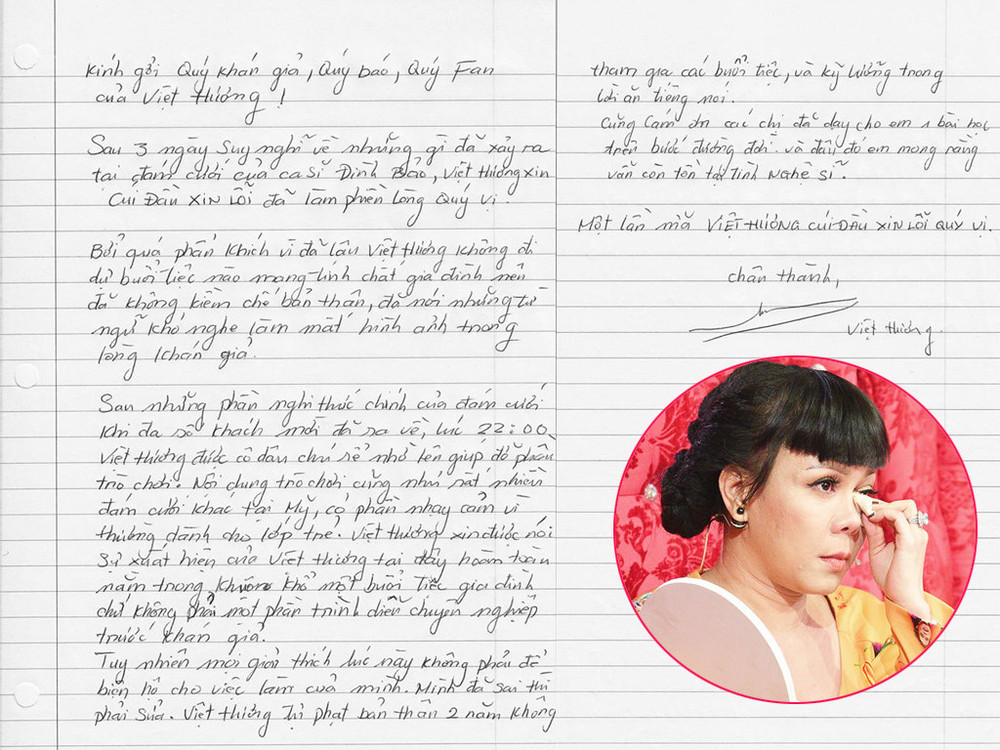 Kính gởi Quý khán giả, Quý báo, Quý Fan
của Việt Hương !
Sau 3 ngày suy nghĩ về những gì đã xảy ra
tại đám cưới của ca sĩ Đinh Bảo, Việt Hương xin
CÚI ĐẦU XIN LỖI đã làm phiền lòng Quý vị.
Bởi quá phấn khích vì đã lâu Việt Hương không đi
dự buổi tiệc nào mang tính chất gia đình nên
đã không kiềm chế bản thân, đã nói những từ
ngữ khó nghe làm mất hình ảnh trong
lòng khán giả.
Sau những phần nghi thức chính của đám cưới
khi đa số khách mời đã ra về, lúc 22:00
Việt Hương được cô dâu chú rể nhờ lên giúp đỡ phần
trò chơi. Nội dung trò chơi cũng như rất nhiều
đám cưới khác tại Mỹ, có phần nhạy cảm vì
thường dành cho lớp trẻ. Việt Hương xin được nói
sự xuất hiện của Việt Hương tại đây hoàn toàn
nằm trong khuôn khổ một buổi tiệc gia đình
chứ không phải một phần trình diễn chuyên nghiệp
trước khán giả.
Tuy nhiên mọi giải thích lúc này không phải để
biện hộ cho việc làm của mình. Mình đã sai thì
phải sửa. Việt Hương tự phạt bản thân 2 năm không
tham gia các buổi tiệc, và kỹ lưỡng trong
lời ăn tiếng nói.
Cũng cám ơn các chị đã dạy cho em 1 bài học
trên bước đường đời. và đâu đó em mong rằng
vẫn còn tồn tại tình nghệ sĩ.
Một lần nữa VIỆT HƯƠNG CÚI ĐẦU XIN LỖI QUÝ VỊ.
chân thành,
Việt Hương.